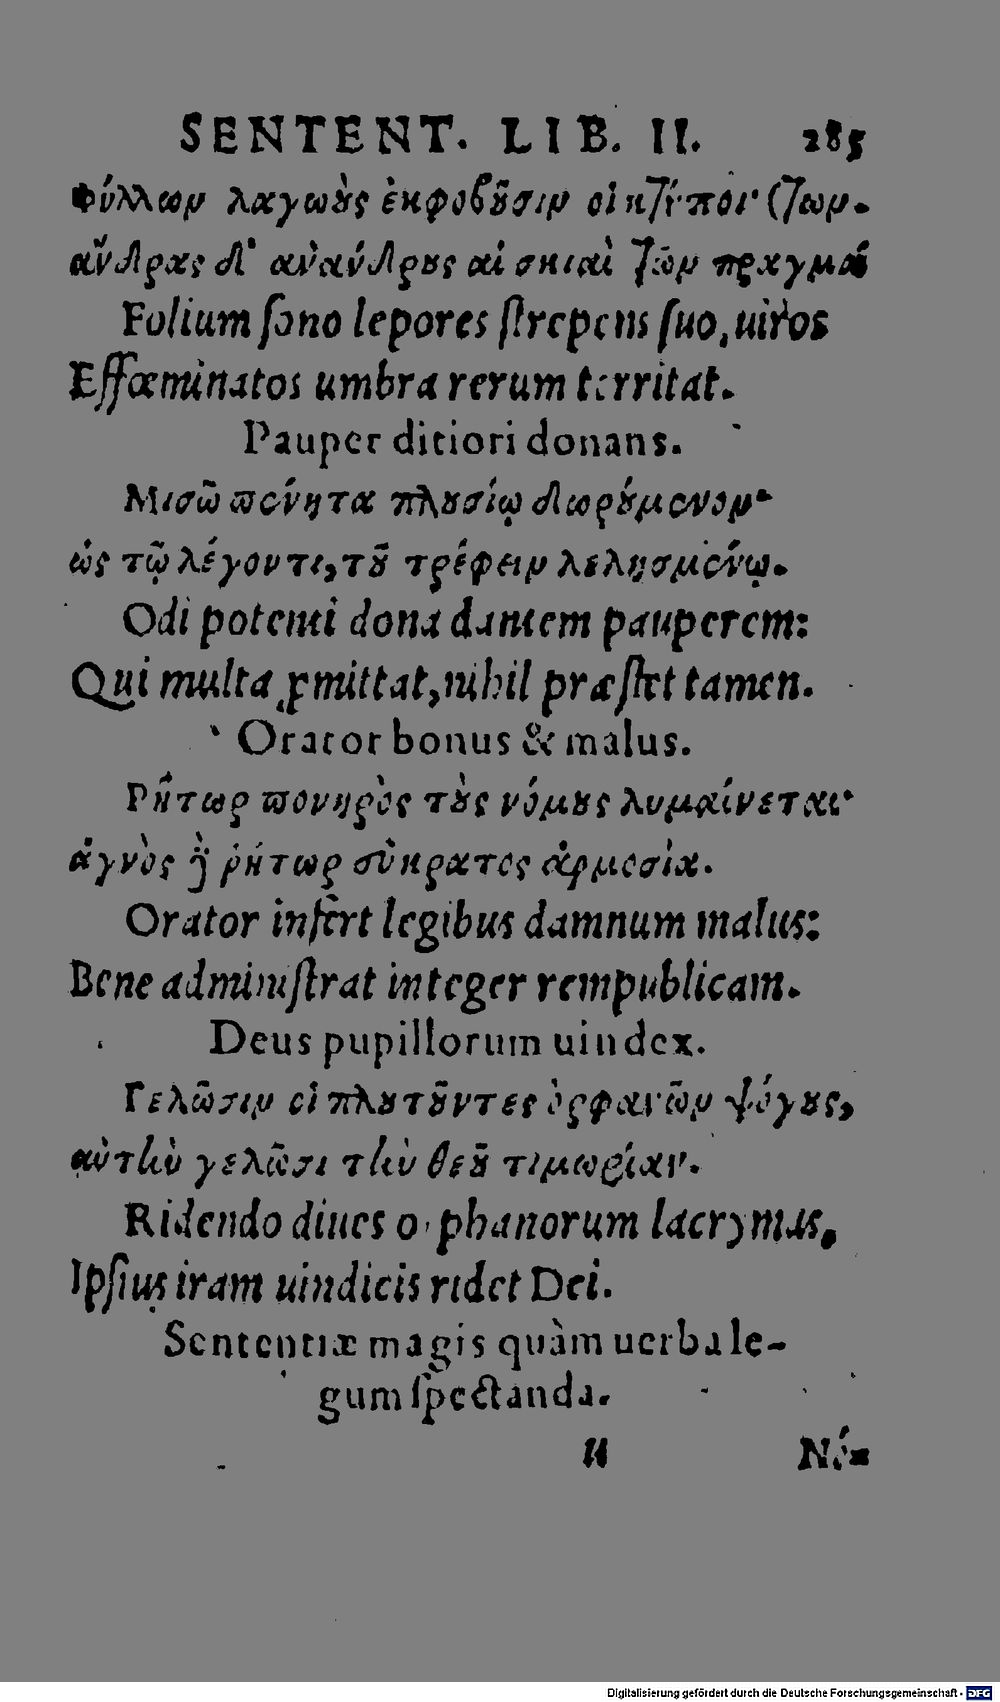 SENTENT. LIB. II. 285
φύλλων λαγωοὺς ἐκφοβοῦσιν οἱ κτύποι· των.
ἄνδρας δ' ἀνάνδρους αἱ σκιαὶ τῶν πραγμά
Folium sono lepores strepens suo, uiros
Effœminatos umbra rerum territat.
Pauper ditiori donans.
Μισῶ πένητα πλουσίῳ δωρούμενον·
ὡς τῷ λέγοντι, τοῦ τρέφειν λελησμένῳ.
Odi potenti dona dantem pauperem:
Qui multa ꝓmittat, nihil præstet tamen.
Orator bonus & malus.
Ρήτωρ πονηρὸς τοὺς νόμους λυμαίνεται·
ἁγνὸς ἢ ῥήτωρ σύκρατος ἁρμοσία.
Orator infert legibus damnum malus:
Bene administrat integer rempublicam.
Deus pupillorum uindex.
Γελῶσιν οἱ πλουτοῦντες ὀρφανῶν ψόγους,
αὐτὴν γελῶσι τὴν θεοῦ τιμωρίαν.
Ridendo diues orphanorum lacrymas,
Ipsius iram uindicis ridet Dei.
Sententiæ magis quàm uerba le-
gum spectanda.
u Νό-